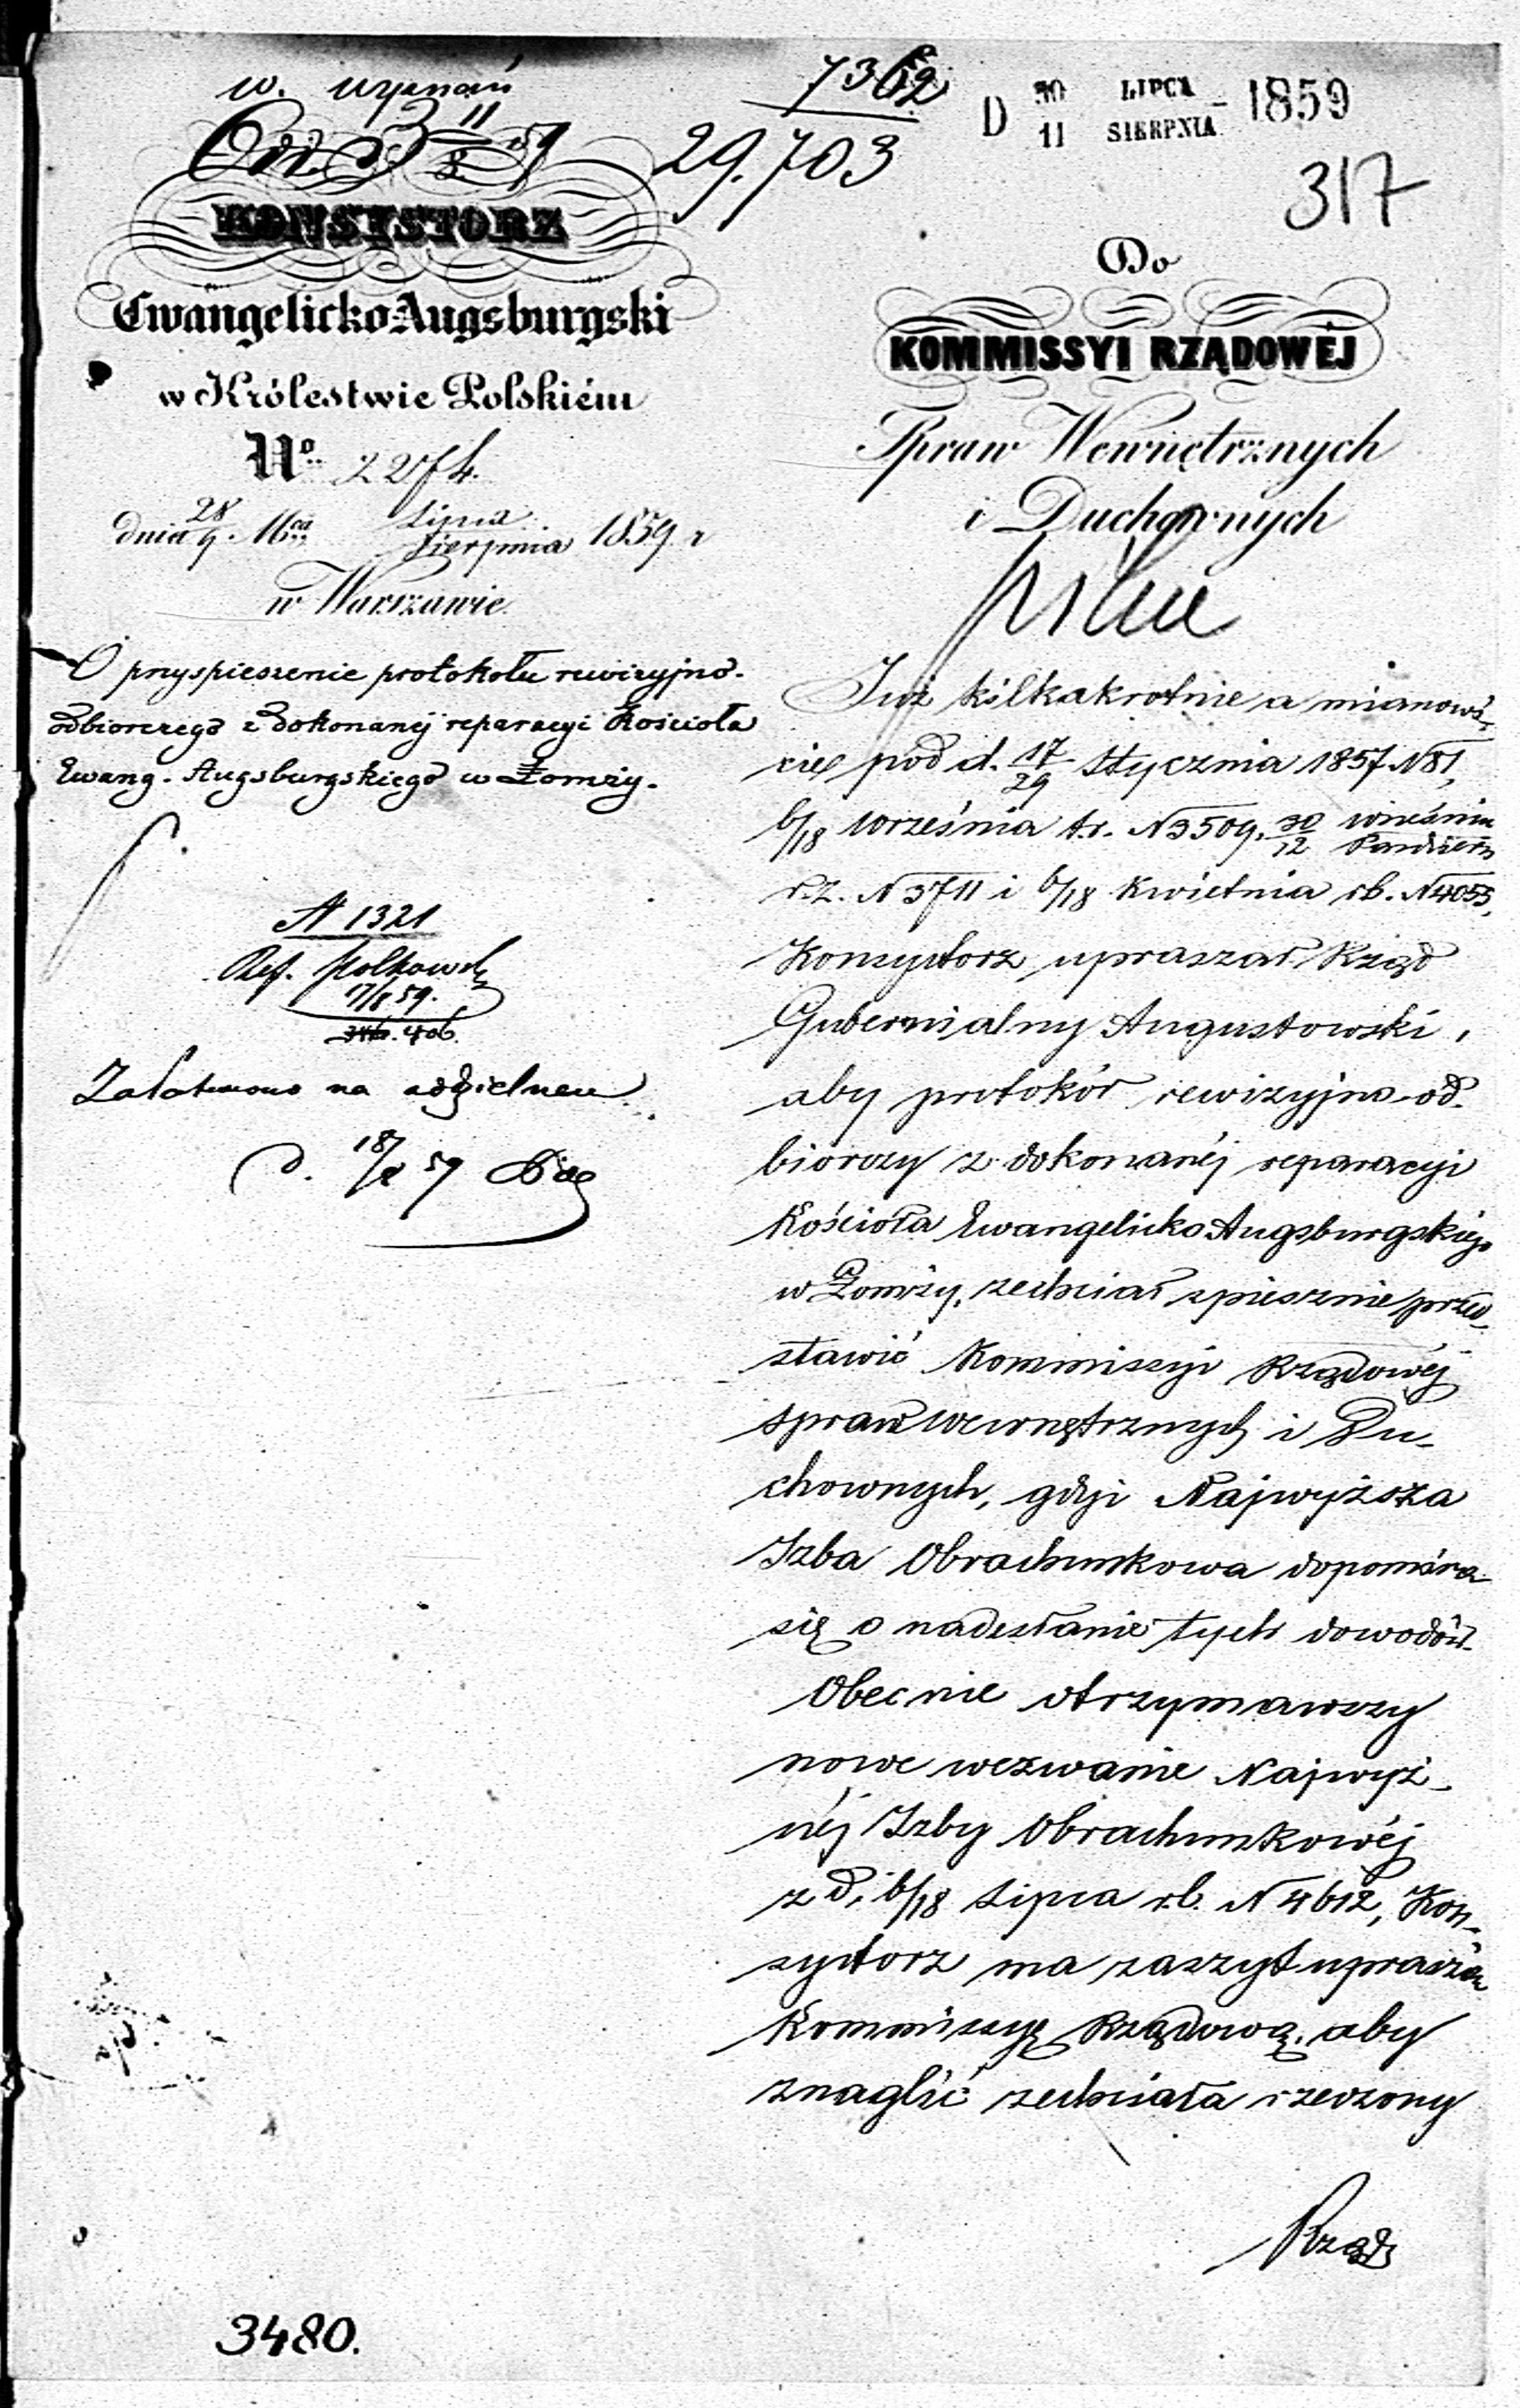 w. wyznań
7362
29.703
D 30 LIPCA
11 SIERPNIA - 1859
317
KONSYSTORZ
Ewangelicko-Augsburgski
w Królestwie Polskiém
No 2274.
dnia 28/9 Mca Lipca/Sierpnia 1859 r
w Warszawie.
O przyspieszenie protokołu rewizyjno-
odbiorczego z dokonanéj reparacyi Kościoła
Ewang. Augsburgskiego w Łomży.
N 1321
Ref.
17/8 59.
406.
Załatwiono na oddzielnem
d. 18/8 59
3480.
Do
KOMMISSYI RZĄDOWÉJ
Spraw Wewnętrznych
i Duchownych
pilne
Już kilkakrotnie a mianowi-
cie pod d. 17/29 Stycznia 1857 N 81,
6/18 Września t.r. N 3509, 30/12 Września/Paździer.
r.z. N 3711 i 6/18 Kwietnia r.b. N 4055,
Konsystorz upraszał Rząd
Gubernialny Augustowski,
aby protokół rewizyjno-od-
biorczy z dokonanéj reparacyi
Kościoła Ewangelicko Augsburgskiego
w Łomży, zechciał spiesznie przed-
stawić Kommissyi Rządowéj
Spraw Wewnętrznych i Du-
chownych, gdyż Najwyższa
Izba Obrachunkowa dopomina
się o nadesłanie tych dowodów.
Obecnie otrzymawszy
nowe wezwanie Najwyż-
széj Izby Obrachunkowéj
z d. 6/18 Lipca r.b. N 4612, Kon-
systorz ma zaszczyt upraszać
Kommissyę Rządową, aby
znaglić zechciała rzeczony
Rząd